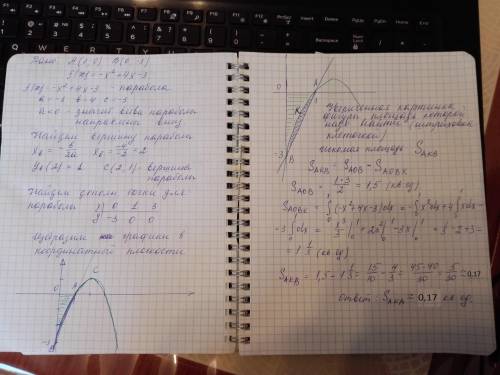 Дано: A(1,0) B(0,-3)
f(x)=-x²+4x-3
f(x)=-x²+4x-3 - парабола
a=-1 b=4 c=-3
a<0 - значит ветви параболы
направлены вниз
Найдём вершину параболы
X₀ = -b/2a X₀ = -4/-2 = 2
Y₀(2) = 1 C(2,1) - вершина
параболы
Найдём дополн. точки для
параболы x 0 1 3
y -3 0 0
Изобразим графики в
координатной плоскости
C
0 A
-3
0 A
1
K
-3 B
Увеличенная картинка
фигуры, площадь которой
надо найти (штриховка
клеточкой)
искомая площадь S_AKB
S_AKB = S_AOB - S_AOBK
S_AOB = 1·3/2 = 1,5 (кв.ед)
S_AOBK = ∫(-x²+4x-3)dx = -∫x²dx + 4∫xdx -
-3∫dx = -x³/3|+2x²|-3x| = -1/3+2-3=
= 1 1/3 (кв.ед)
S_AKB = 1,5 - 1 1/3 = 15/10 - 4/3 = 45-40/30 = 5/30 = 0,17
ответ: S_AKB = 0,17 кв.ед.